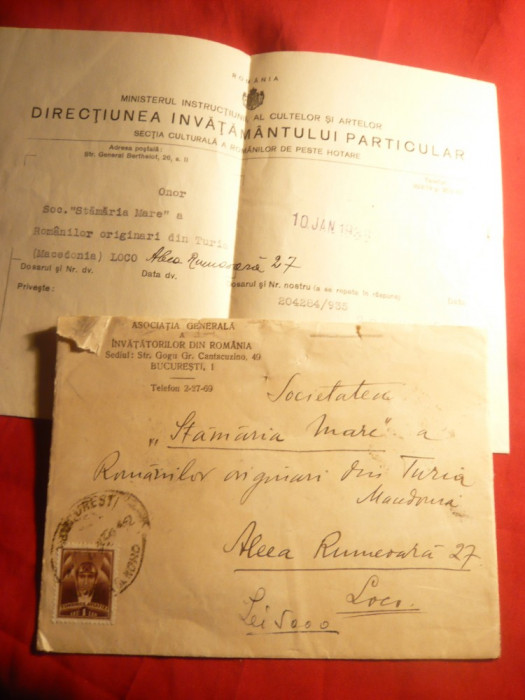 ROMÂNIA
MINISTERUL INSTRUCȚIUNII AL CULTELOR ȘI ARTELOR
DIRECȚIUNEA INVĂȚĂMÂNTULUI PARTICULAR
SECȚIA CULTURALĂ A ROMÂNILOR DE PESTE HOTARE
Adresa poștală:
Str. General Berthelot, 26, s. II
Onor
Soc."Stămăria Mare" a
Românilor originari din Turia
(Macedonia) LOCO Aleea Rumeoară 27
10 JAN 19
Dosarul și Nr. dv.
Data dv.
Dosarul și Nr. nostru (a se repeta în răspuns)
Privește:
204284/935
ASOCIAȚIA GENERALĂ
A
INVĂȚĂTORILOR DIN ROMÂNIA
Sediul: Str. Gogu Gr. Cantacuzino, 49
BUCUREȘTI, I
Telefon 2-27-69
Societatea
"Stămăria Mare" a
Românilor originari din Turia
Macedonia
Aleea Rumeoară 27
Loco.
Lei 5000
BUCUREȘTI